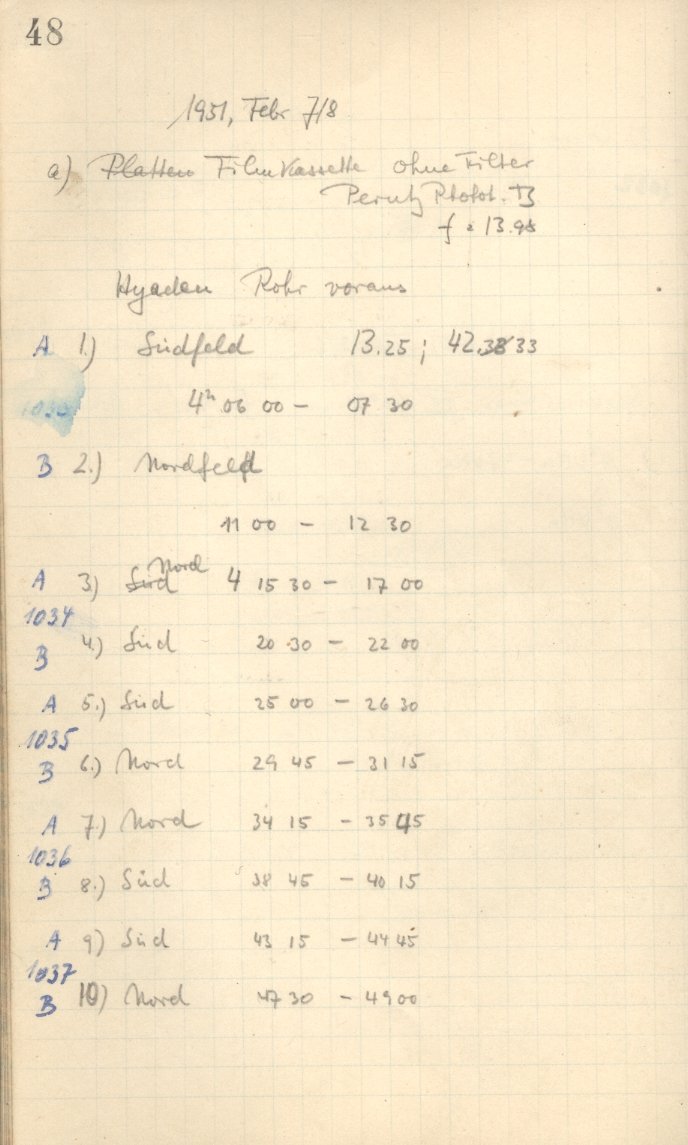 48
1951, Febr 7/8
a) Platten Filmkassette ohne Filter
Perutz Photot. B
f = 13.98
Hyaden Rohr voraus
A 1.) Südfeld 13.25 ; 42.38 33
1033
4h 06 00 – 07 30
B 2.) Nordfeld
11 00 – 12 30
Nord
A 3) Süd 4 15 30 – 17 00
1034
B 4.) Süd 20 30 – 22 00
A 5.) Süd 25 00 – 26 30
1035
B 6.) Nord 29 45 – 31 15
A 7.) Nord 34 15 – 35 45
1036
B 8.) Süd 38 45 – 40 15
A 9) Süd 43 15 – 44 45
1037
B 10) Nord 47 30 – 49 00